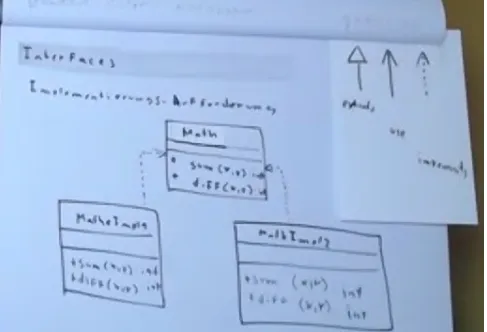 Interfaces
Implementierungs-Anforderung
extends
use
implements
Math
+ sum (x,y) int
+ diff (x,y) int
MatheImpl1
MathImpl2
+sum (x,y) int
+diff (x,y) int
+sum (x,y) int
+diff (x,y) int